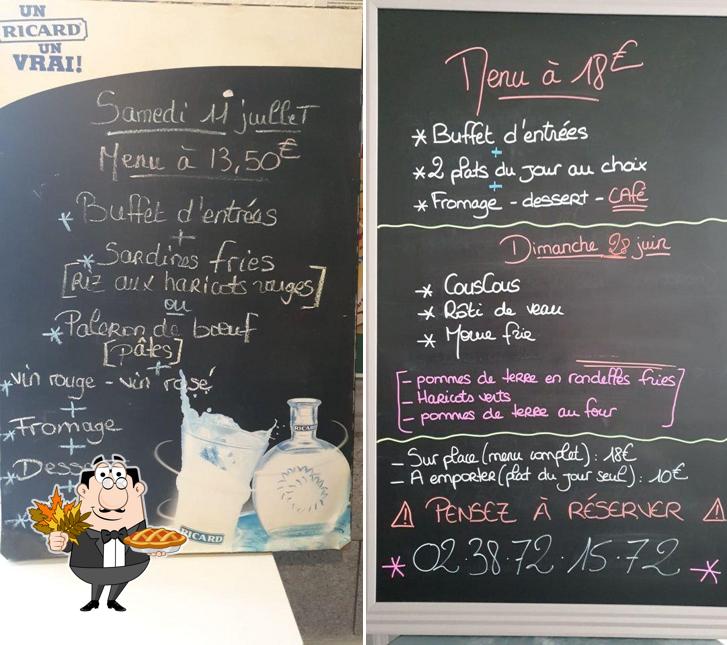 UN
RICARD
UN
VRAI!
Samedi 11 juillet
Menu à 13,50€
* Buffet d'entrées
+
* Sardines fries
[Riz aux haricots rouges]
ou
* Paleron de bœuf
[pâtes]
+
* vin rouge - vin rosé
+
* Fromage
+
* Dess
+
*
RICARD
RICARD
Menu à 18€
* Buffet d'entrées
+
* 2 plats du jour au choix
+
* Fromage - dessert - CAFé
Dimanche 28 juin
* CousCous
* Rôti de veau
* Morue frie
- pommes de terre en rondelles fries
- Haricots verts
- pommes de terre au four
- Sur place (menu complet) : 18€
- A emporter (plat du jour seul) : 10€
⚠ PENSEZ À RÉSERVER ⚠
* 02.38.72.15.72 *